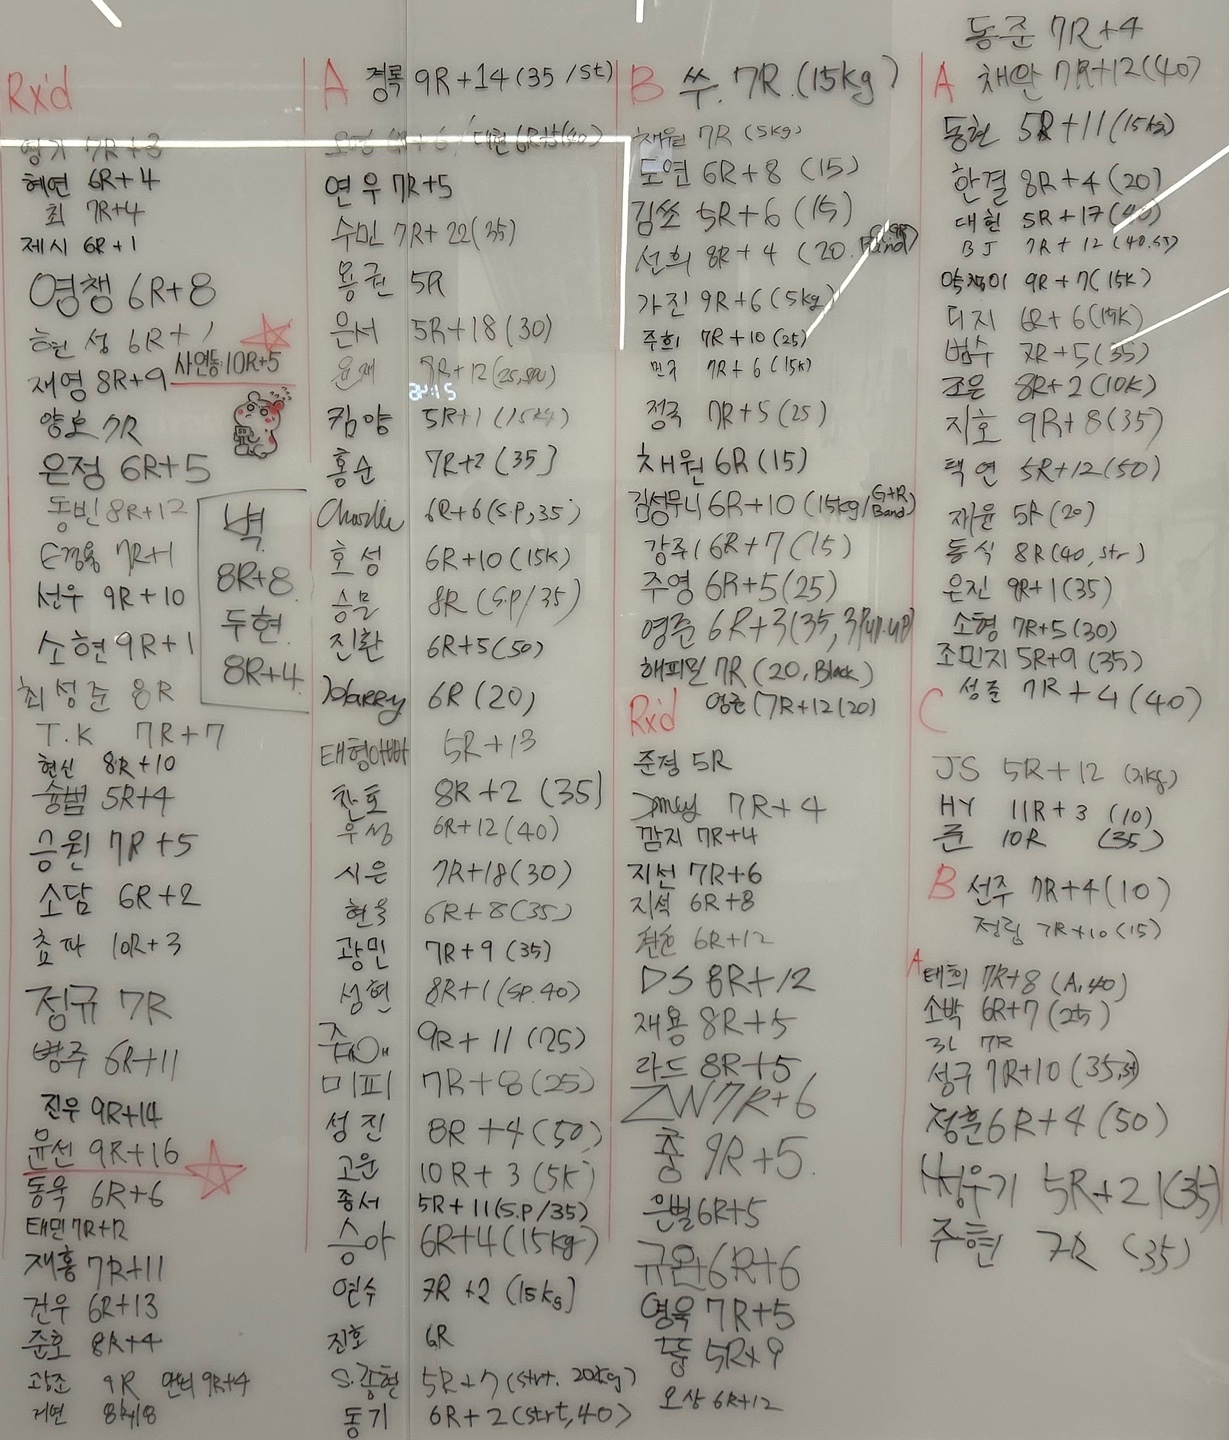 Rx'd
영기 7R+3
혜연 6R+4
최 7R+4
제시 6R+1
영챙 6R+8
현성 6R+
사연동 10R+5
재영 8R+9
양호 7R
은정 6R+5
동빈 8R+12
7R+1
선우 9R+10
소현 9R+1
벽
8R+8
두현
8R+4
최성준 8R
T.K 7R+7
현신 8R+10
숭범 5R+4
승원 7R+5
소담 6R+2
쵸파 10R+3
정규 7R
병주 6R+11
진우 9R+14
윤선 9R+16
동욱 6R+6
태민 7R+12
재홍 7R+11
건우 6R+13
준호 8R+4
광조 9R 9R+4
지연
A 경록 9R+14 (35/st)
연우 7R+5
수민 7R+22 (35)
용권 5R
은서 5R+18 (30)
윤재 7R+12
킴양 5R+1 (15kg)
홍순 7R+2 (35)
Charlie 6R+6 (S.P, 35)
호성 6R+10 (15K)
8R (S.P/35)
진환 6R+5 (50)
Harry 6R (20)
태형아빠 5R+13
찬호 8R+2 (35)
우성 6R+12 (40)
시은 7R+18 (30)
현욱 6R+8 (35)
광민 7R+9 (35)
성현 8R+1 (S.P. 40)
9R+11 (25)
미피 7R+8 (25)
성진 8R+4 (50)
고윤 10R+3 (5K)
종서 5R+11 (S.P/35)
승아 6R+4 (15kg)
연수 7R+2 (15kg)
진호 6R
S.종현 5R+7 (strt. 20kg)
동기 6R+2 (strt, 40)
B 쑤. 7R. (15kg)
채원 7R (5kg)
도연 6R+8 (15)
김쏘 5R+6 (15)
선희 8R+4 (20.
가진 9R+6 (5kg)
주희 7R+10 (25)
민주 7R+6 (15K)
정국 7R+5 (25)
채원 6R (15)
김성무니 6R+10 (15kg/G+R Band)
강주 6R+7 (15)
주영 6R+5 (25)
영준 6R+3 (35, 3Pull-up)
해피밀 7R (20, Black)
Rx'd
7R+12 (20)
준경 5R
7R+4
깜지 7R+4
지선 7R+6
지석 6R+8
6R+12
DS 8R+12
재용 8R+5
라드 8R+5
ZW 7R+6
충 9R+5.
은별 6R+5
규원 6R+6
영욱 7R+5
5R+9
오상 6R+12
동준 7R+4
A 채완 7R+12 (40)
동현 5R+11 (15kg)
한결 8R+4 (20)
대헌 5R+17 (40)
BJ 7R+12 (40.st)
9R+7 (15K)
디지 6R+6 (15K)
범수 7R+5 (35)
조은 8R+2 (10K)
지호 9R+8 (35)
택연 5R+12 (50)
재윤 5R (20)
동식 8R (40, str)
은진 9R+1 (35)
소형 7R+5 (30)
조민지 5R+9 (35)
성준 7R+4 (40)
C
JS 5R+12
HY 11R+3 (10)
준 10R (35)
B 선주 7R+4 (10)
정림 7R+10 (15)
A
태희 7R+8 (A, 40)
소박 6R+7 (25)
7R
성구 7R+10 (35, st)
정훈 6R+4 (50)
5R+21 (35)
주현 7R (35)